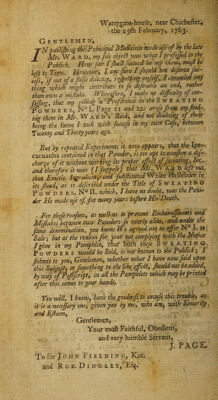 Watergate-house, near Chichester,
the 25th February, 1763.
GENTLEMEN,
IN publishing the Principal Medicines made use of by the late
Mr. WARD, my sole intent was what I professed to the
Publick. How far I shall succeed in my view, must be
left to Time. However, I am sure I should not deserve suc-
cess, if out of a false delicacy, respecting myself, I omitted any
thing which might contribute to its defence at an end, rather
than own a mistake. Wherefore, I make no difficulty of con-
fessing, that my giving in Preference to the SWEATING
POWDERS, No I. Page 21 and 22; arose from my find-
ing them in Mr. WARD's Book, and not doubting of their
being the same I took with success in my own Case, between
Twenty and Thirty years ago.
But by repeated Experiment it now appears, that the Ipe-
cacuanha contained in that Powder, is too apt to occasion a dis-
charge of it without working its proper effect of sweating, &c.
and therefore it was (I suppose) that Mr. WARD left out
that Emetic Ingredient, and substituted White Hellebore in
its stead, as is described under the Title of SWEATING
POWDERS, No II. which, I have no doubt, was the Powder
He made use of for many years before His Death.
For these reasons, as well as to prevent Embarrassments and
Mistakes between two Powders of nearly alike, and under the
same denomination, you know We agreed not to offer No I. to
Sale; but as the reason for your not complying with the Notice
I give in my Pamphlet, that both these SWEATING
POWDERS would be Sold, is not known to the Publick; I
submit to you, Gentlemen, whether what I have now said upon
this Subject, or something to the like effect, should not be added,
by way of Postscript, in all the Pamphlets which may be printed
after this comes to your hands.
You will, I know, have the goodness to excuse this trouble, as
it is a necessary one, given you by me, who am, with Sincerity
and Esteem,
Gentlemen,
Your most Faithful, Obedient,
and very humble Servant,
J. PAGE.
To Sir JOHN FIELDING, Knt.
and ROB. DINGLEY, Esq.